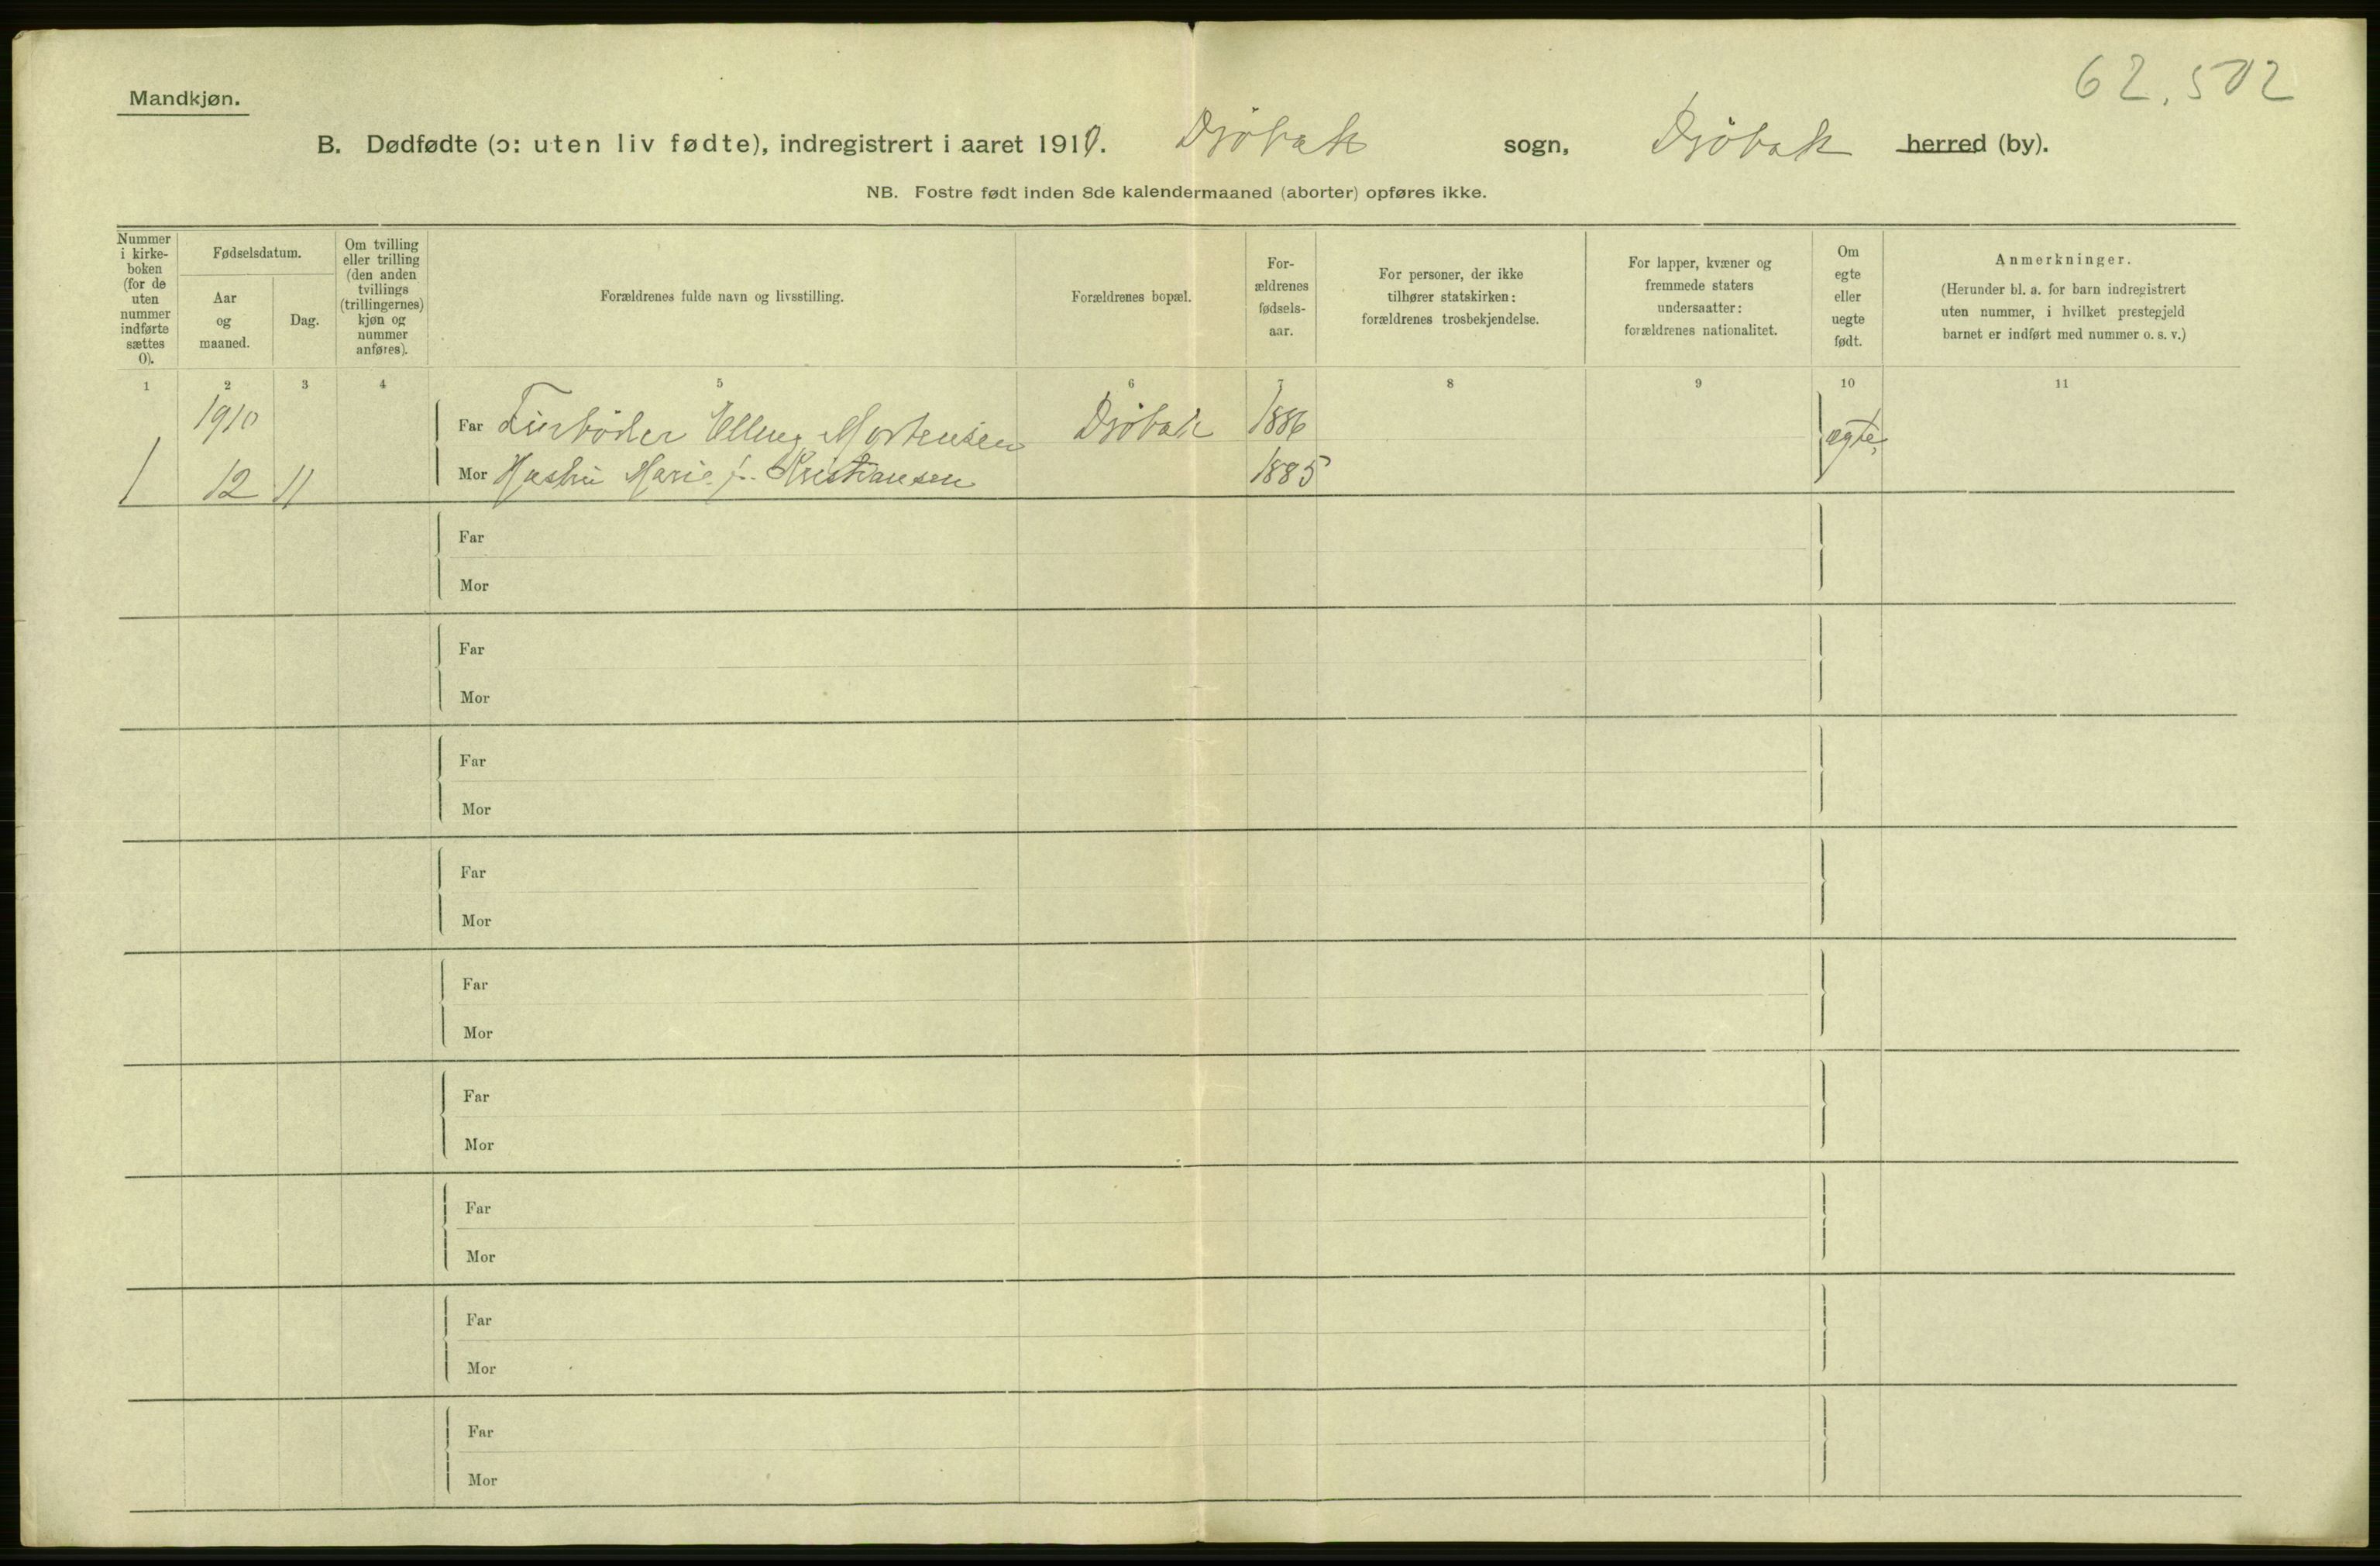 62.502
Mandkjøn.
B. Dødfødte (ɔ: uten liv fødte), indregistrert i aaret 1910. Drøbak sogn, Drøbak herred (by).
NB. Fostre født inden 8de kalendermaaned (aborter) opføres ikke.
Nummer i kirkeboken (for de uten nummer indførte sættes 0).
Fødselsdatum.
Aar og maaned.
Dag.
Om tvilling eller trilling (den anden tvillings (trillingernes) kjøn og nummer anføres).
Forældrenes fulde navn og livsstilling.
Forældrenes bopæl.
Forældrenes fødselsaar.
For personer, der ikke tilhører statskirken: forældrenes trosbekjendelse.
For lapper, kvæner og fremmede staters undersaatter: forældrenes nationalitet.
Om egte eller uegte født.
Anmerkninger.
(Herunder bl. a. for barn indregistrert uten nummer, i hvilket prestegjeld barnet er indført med nummer o. s. v.)
1 2 3 4 5 6 7 8 9 10 11
1910 Far Elling Mortensen Drøbak 1886 ægte
1 12 11 Mor Hustru Marie f. Kristiansen 1885
Far
Mor
Far
Mor
Far
Mor
Far
Mor
Far
Mor
Far
Mor
Far
Mor
Far
Mor
Far
Mor